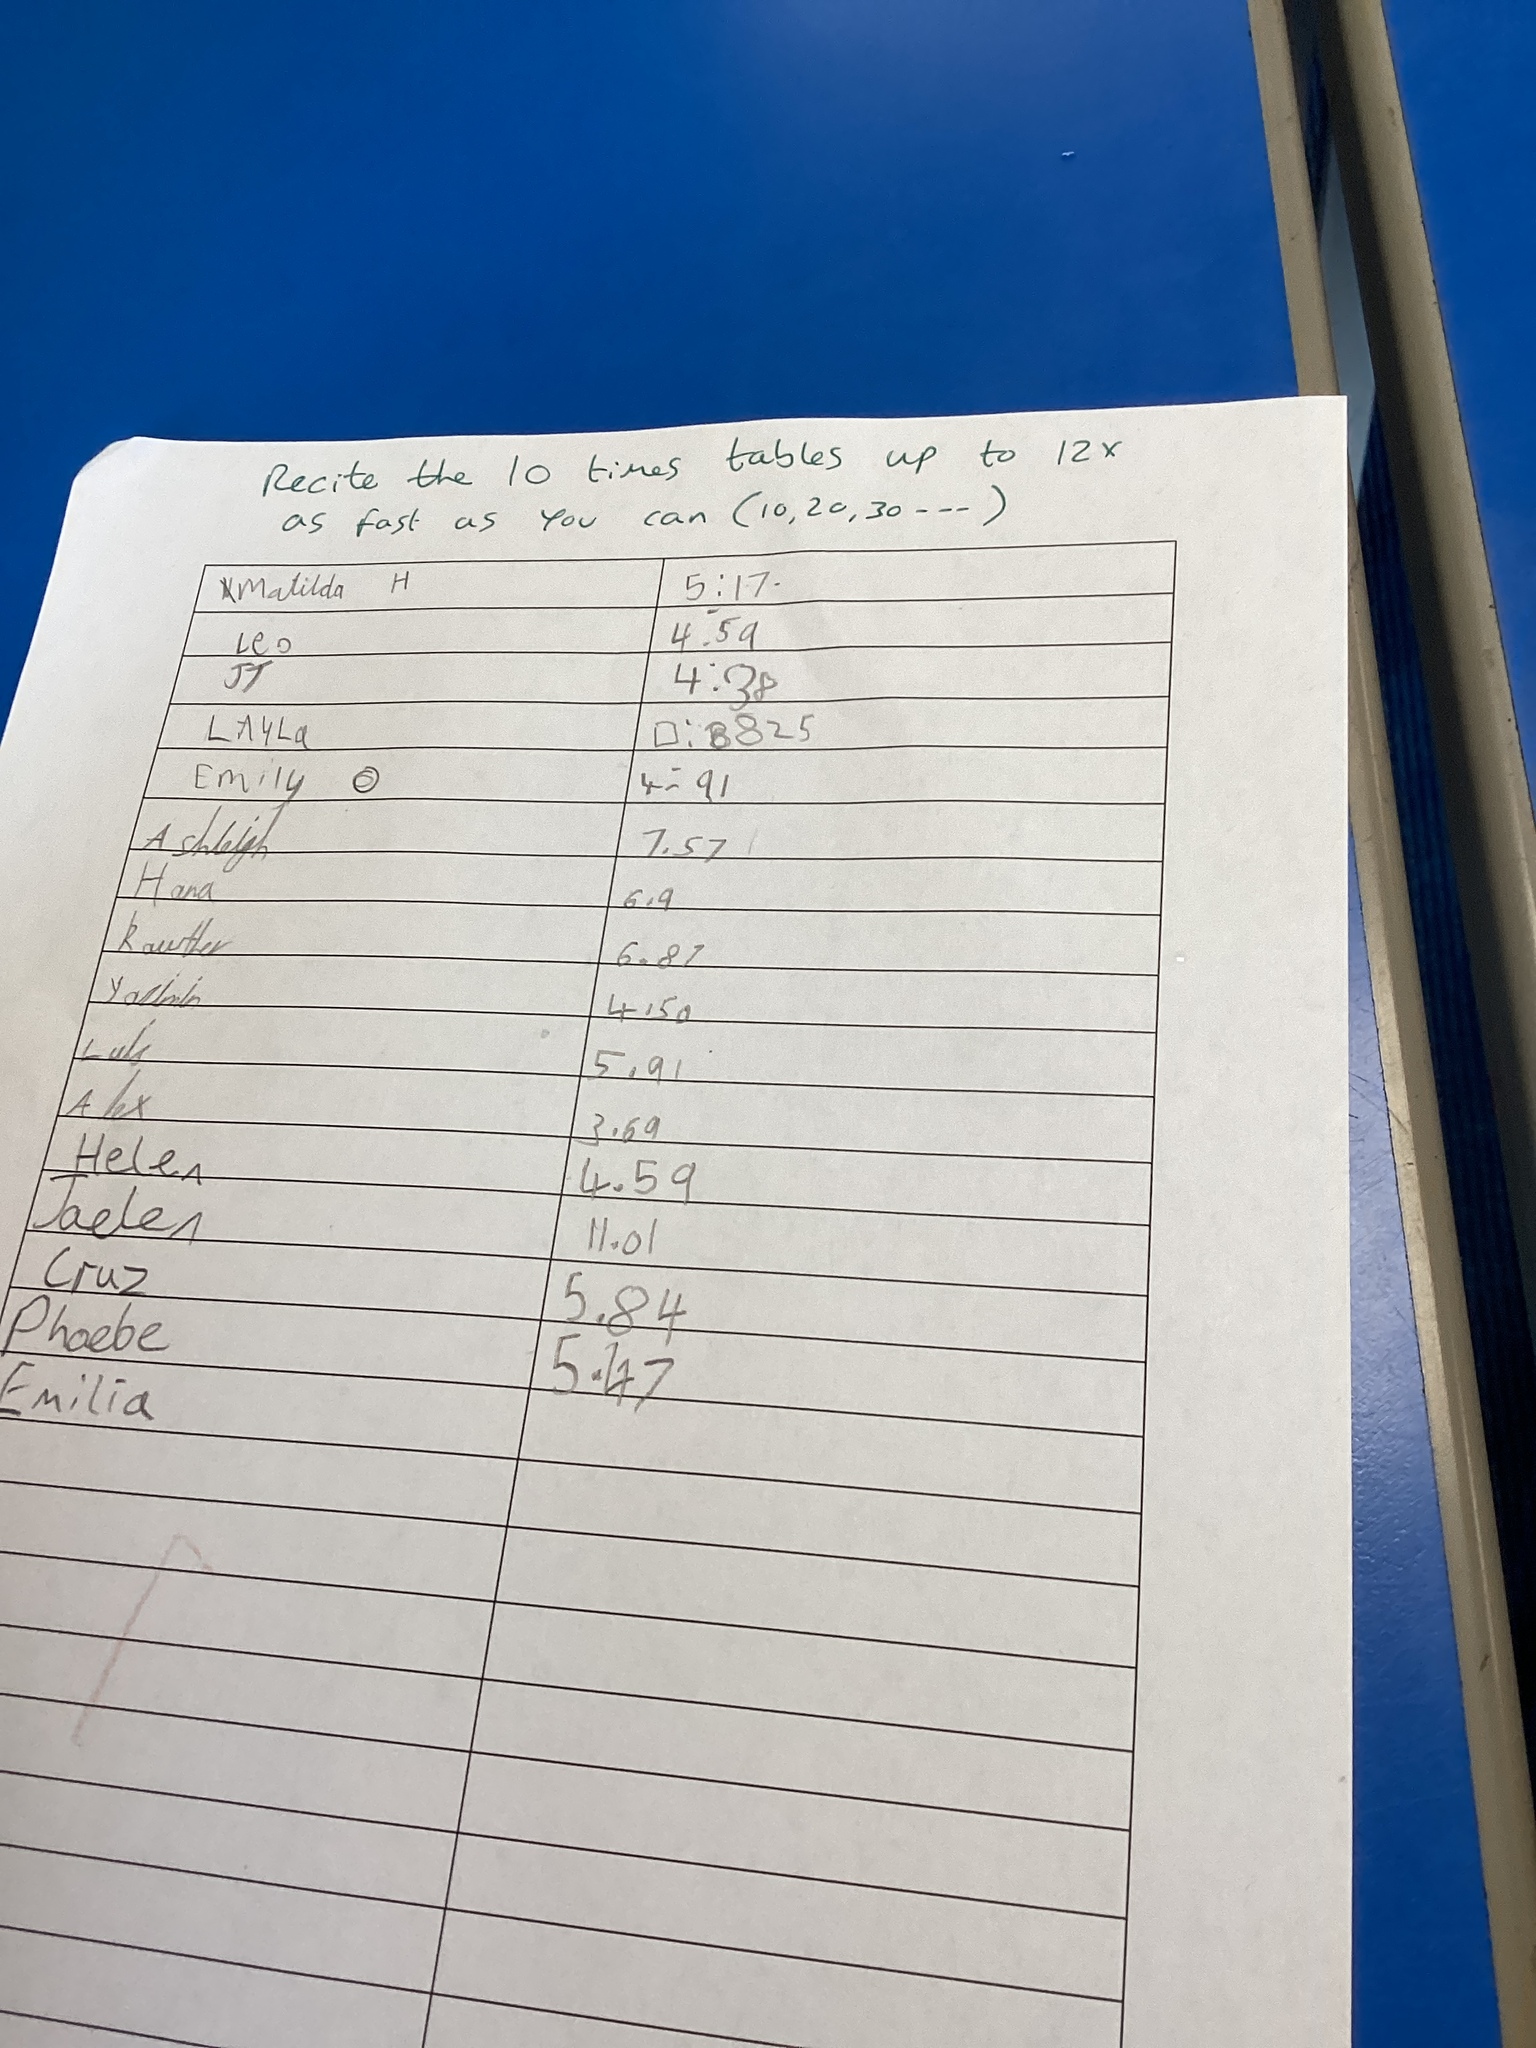 Recite the 10 times tables up to 12x
as fast as you can (10, 20, 30 ---)
Matilda H 5:17.
Leo 4:59
JT 4:38
LAYLa 8825
Emily 4:91
Ashleigh 7.57
Hana 6.9
Kawther 6.87
Yasmin 4.50
5.91
Alex 3.69
Helen 4.59
Jaelen 11.01
Cruz 5.84
Phoebe 5.47
Emilia